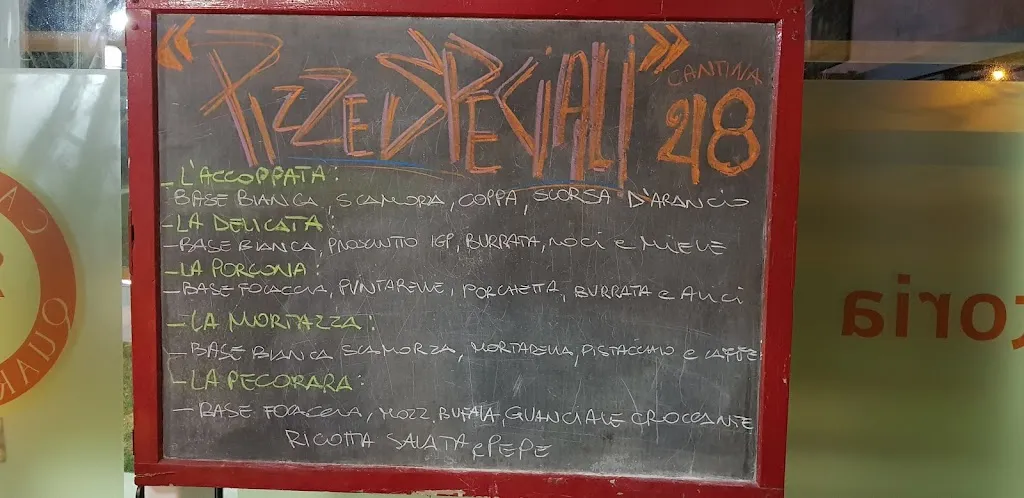 « PIZZE SPECIALI »
CANTINA
218
- L'ACCOPPATA:
BASE BIANCA, SCAMORZA, COPPA, SCORSA D'ARANCIO
- LA DELICATA:
- BASE BIANCA, PROSCIUTTO IGP, BURRATA, NOCI e MIELE
- LA PORCONA:
- BASE FOCACCIA, PUNTARELLE, PORCHETTA, BURRATA e ALICI
- LA MORTAZZA:
- BASE BIANCA SCAMORZA, MORTADELLA, PISTACCHIO e CAFFE
- LA PECORARA:
- BASE FOCACCIA, MOZZ. BUFALA, GUANCIALE CROCCANTE
RICOTTA SALATA e PEPE
toria